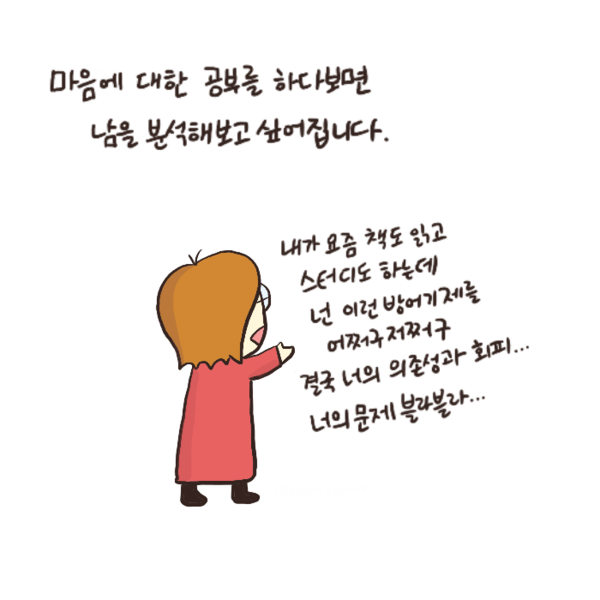 마음에 대한 공부를 하다보면
남을 분석해보고 싶어집니다.
내가 요즘 책도 읽고
스터디도 하는데
넌 이런 방어기제를
어쩌구저쩌구
결국 너의 의존성과 회피...
너의 문제 블라블라...